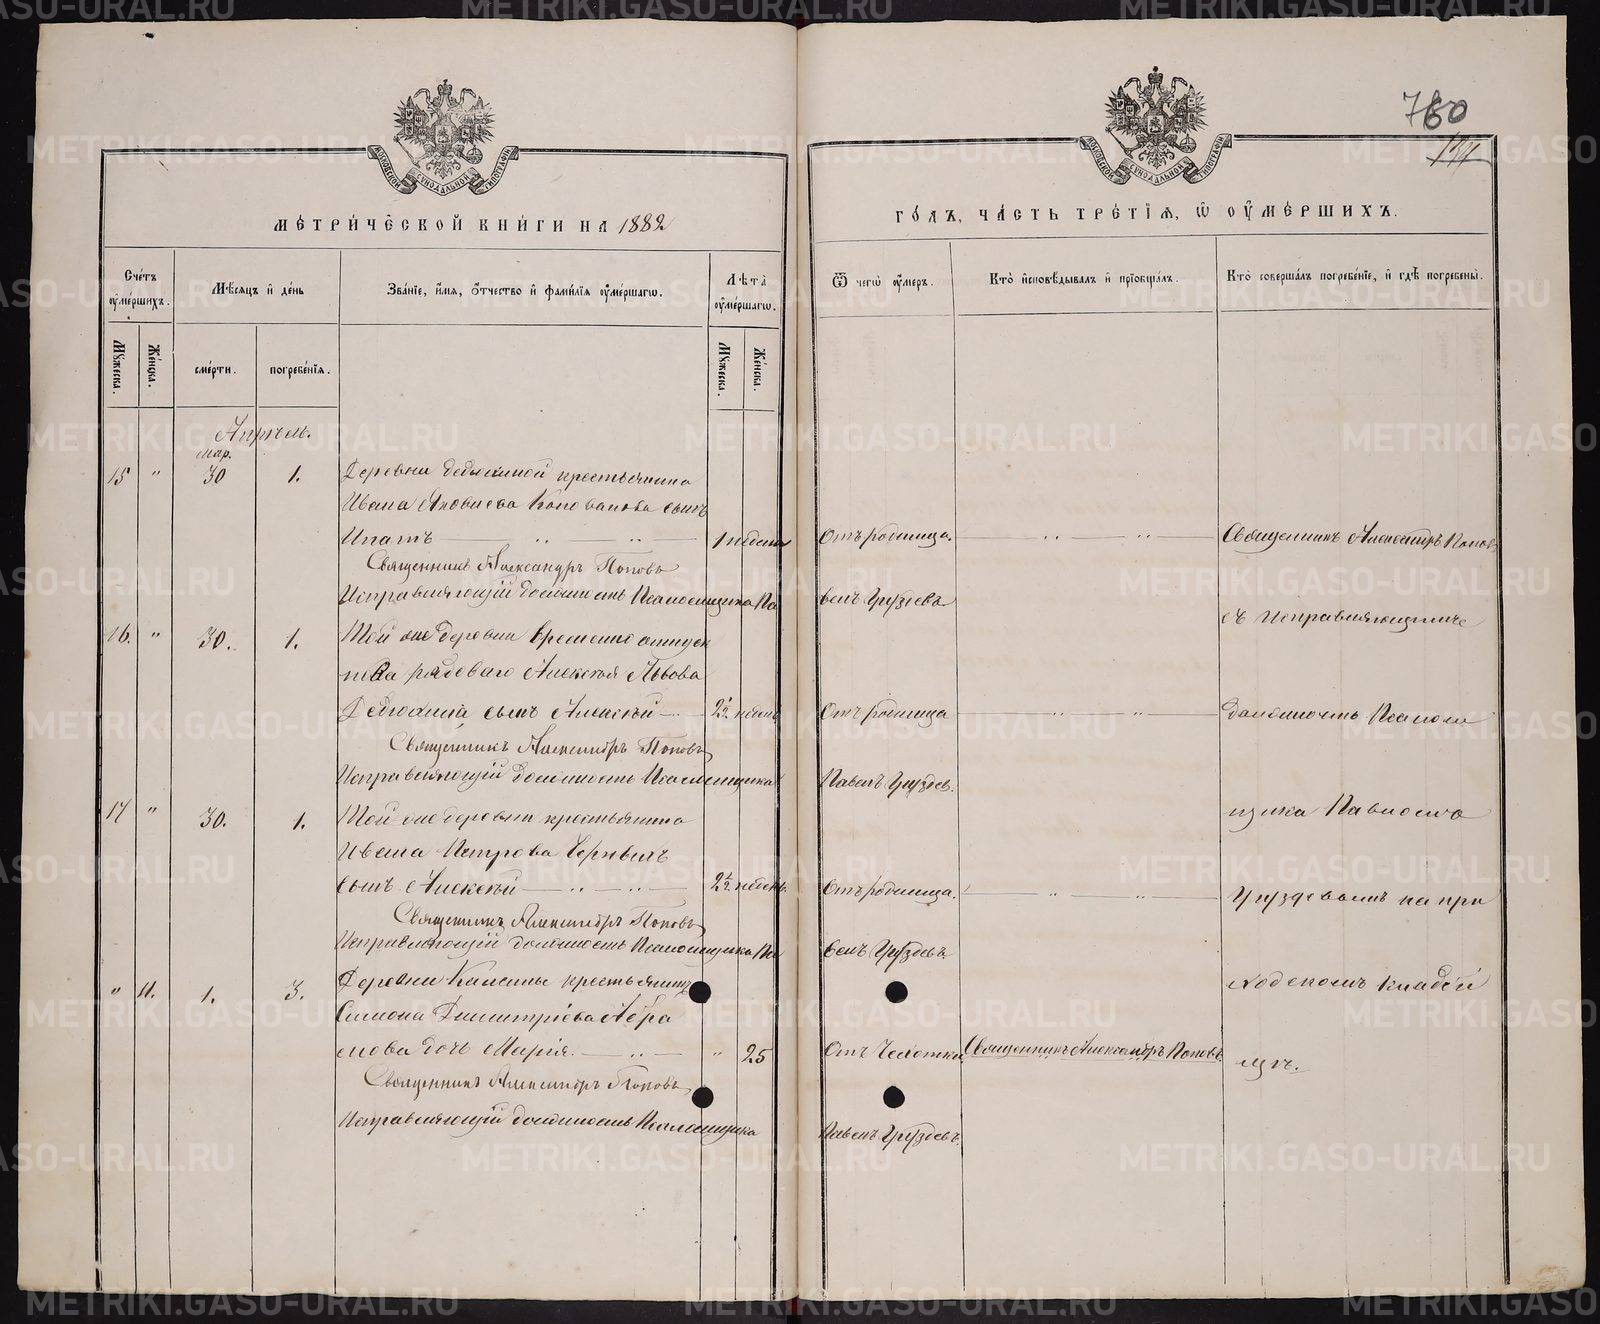 МЕТРИЧЕСКОЙ КНИГИ НА 1882
Счетъ оумершихъ.
Мѣсяцъ и день
Званіе, имя, отчество и фамилія оумершагω.
Лѣта оумершагω.
Мужеска.
Женска.
смерти.
погребенія.
Мужеска.
Женска.
Апрѣль.
мар.
15 " 30 1. Деревни крестьянина
Ивана Яковлева сынъ
Ипатъ 1 недели
Священникъ Александръ Поповъ
Исправляющій должность Псаломщика Па
16. " 30. 1. Той же деревни временно отпуск
наго рядоваго Алексѣя Львова
сынъ Алексѣй 2½ недѣль
Священникъ Александръ Поповъ
Исправляющій должность Псаломщика
17 " 30. 1. Той же деревни крестьянина
Ивана Петрова Черныхъ
сынъ Алексѣй 2½ недѣль
Священникъ Александръ Поповъ
Исправляющій должность Псаломщика Па
" 11. 1. 3. Деревни крестьянина
Симона Димитріева Абра
мова дочь Марія " 25
Священникъ Александръ Поповъ
Исправляющій должность Псаломщика
760
ГОДЪ, ЧАСТЬ ТРЕТІЯ, Ѡ ОУМЕРШИХЪ.
Ѿ чегω оумеръ.
Кто исповѣдывалъ и пріобщалъ.
Кто совершалъ погребеніе, и гдѣ погребены.
Отъ родимца. Священникъ Александръ Поповъ
велъ Груздевъ
съ Исправляющимъ
Отъ родимца должность Псалом
Павелъ Груздев.
щика Павломъ
Отъ родимца. Груздевымъ на при
велъ Груздевъ.
ходскомъ кладби
Отъ Чахотки Священникъ Александръ Поповъ.
щѣ.
Павелъ Груздевъ.
METRIKI.GASO-URAL.RU